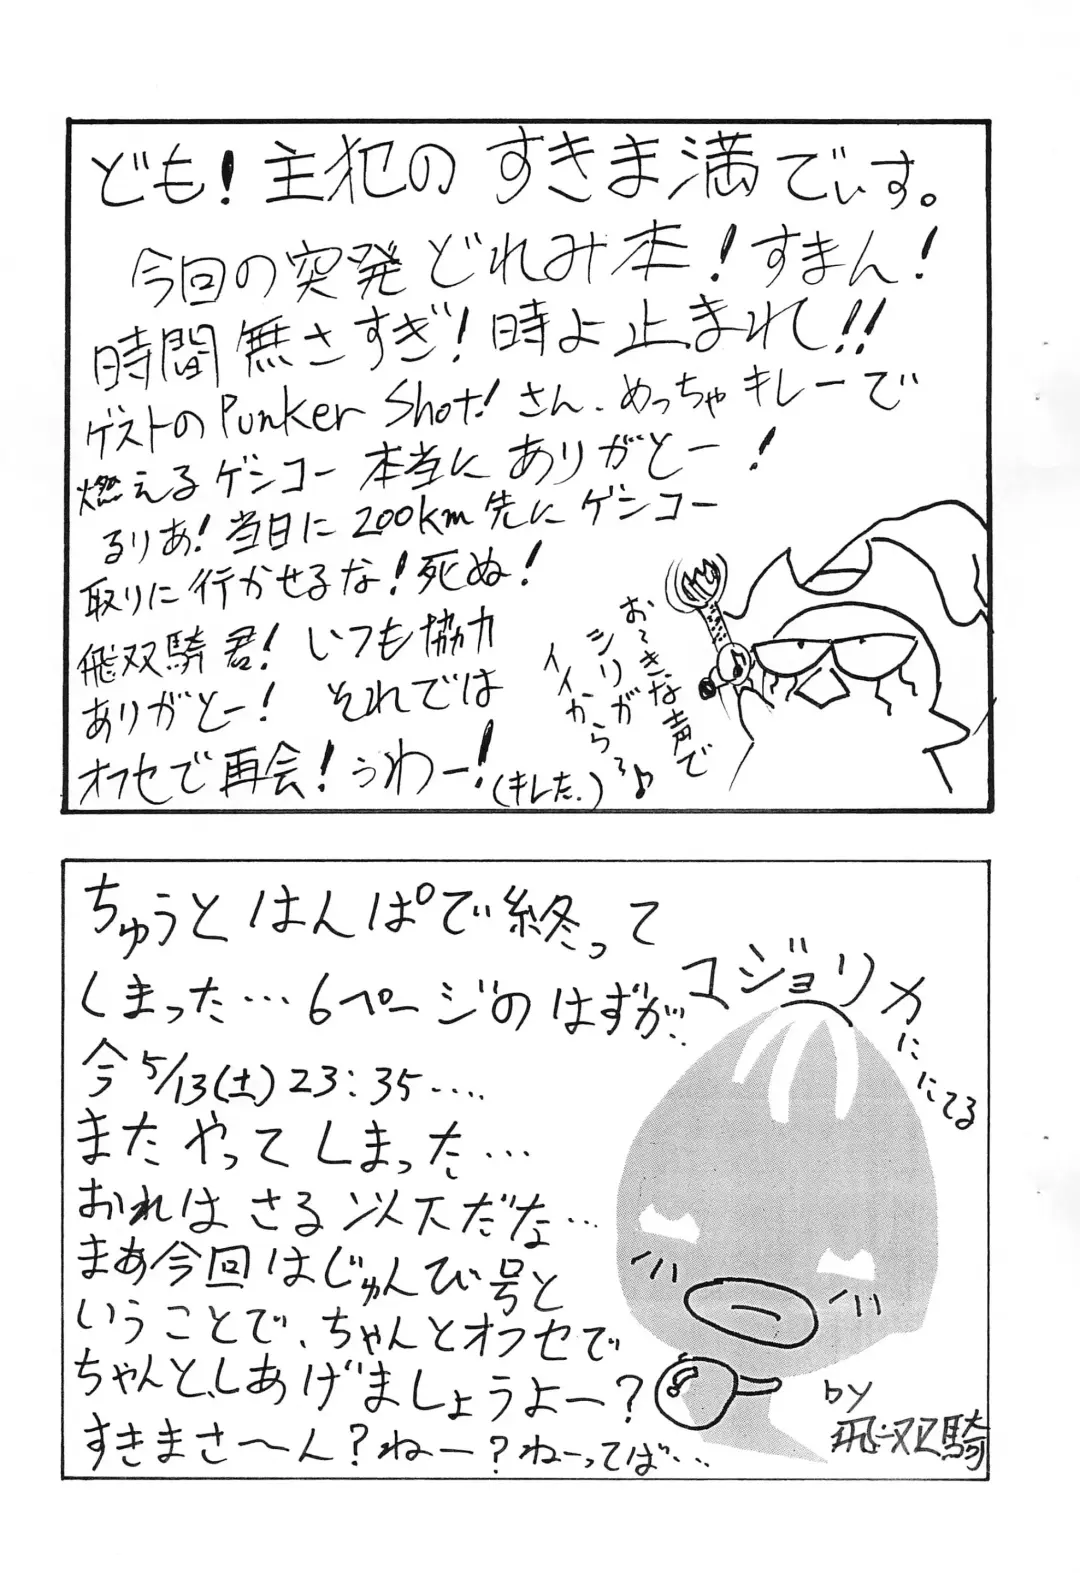 ども！主犯のすきま満でぃす。
今回の突発どれみ本！すまん！
時間無さすぎ！時よ止まれ！！
ゲストのPunker Shot！さん、めっちゃキレーで
燃えるゲンコー本当にありがとー！
るりあ！当日に200km先にゲンコー
取りに行かせるな！死ぬ！
飛双騎君！いつも協力
ありがとー！それでは
オフセで再会！うわー！(キレた.)
お〜きな声で
シリガ
イイから〜♪
ちゅうとはんぱで終って
しまった…6ページのはずが..
今5/13(土)23:35....
またやってしまった…
おれはさる以下だな…
まあ今回はじゅんび号と
いうことで、ちゃんとオフセで
ちゃんと、しあげましょうよー？
すきまさ〜ん？ねー？ねーってば…
マジョリカににてる
by
飛双騎